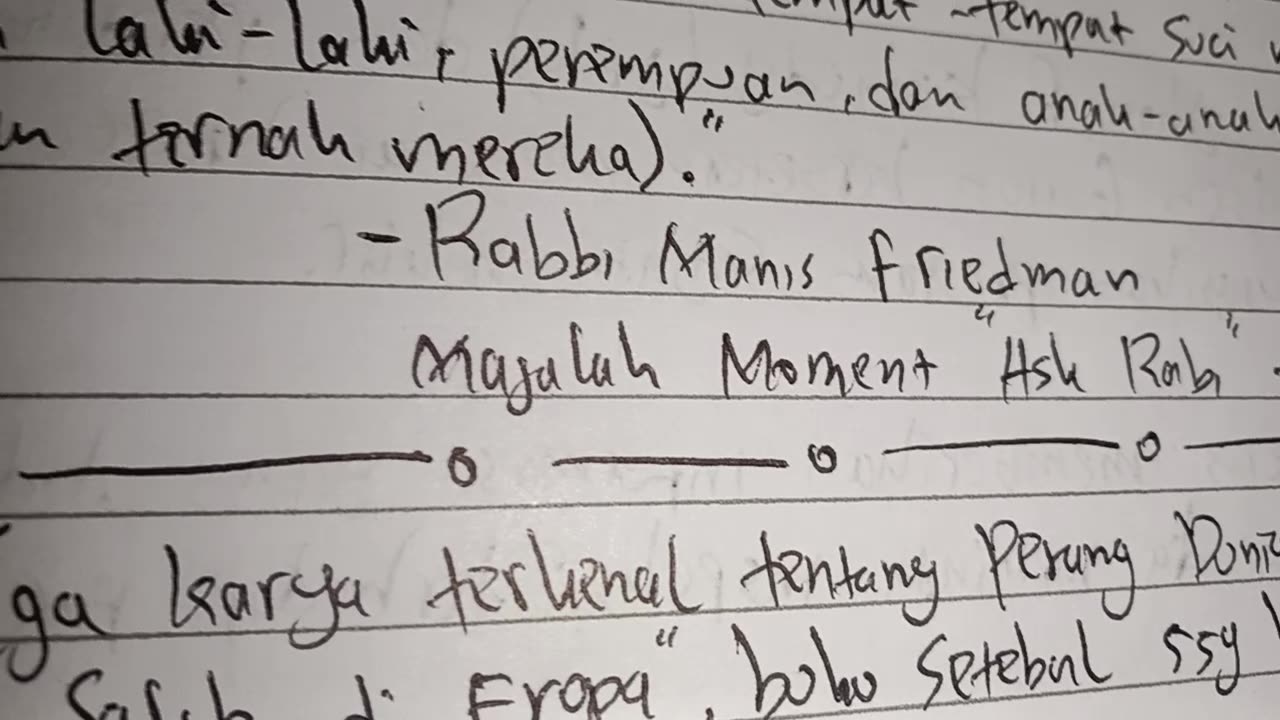 -tempat suci
laki-laki, perempuan, dan anak-anak
ternak mereka)."
- Rabbi Manis Friedman
Majalah Moment "Ask Rabi"
ga karya terkenal tentang Perang Duni
di Eropa", buku setebal 559